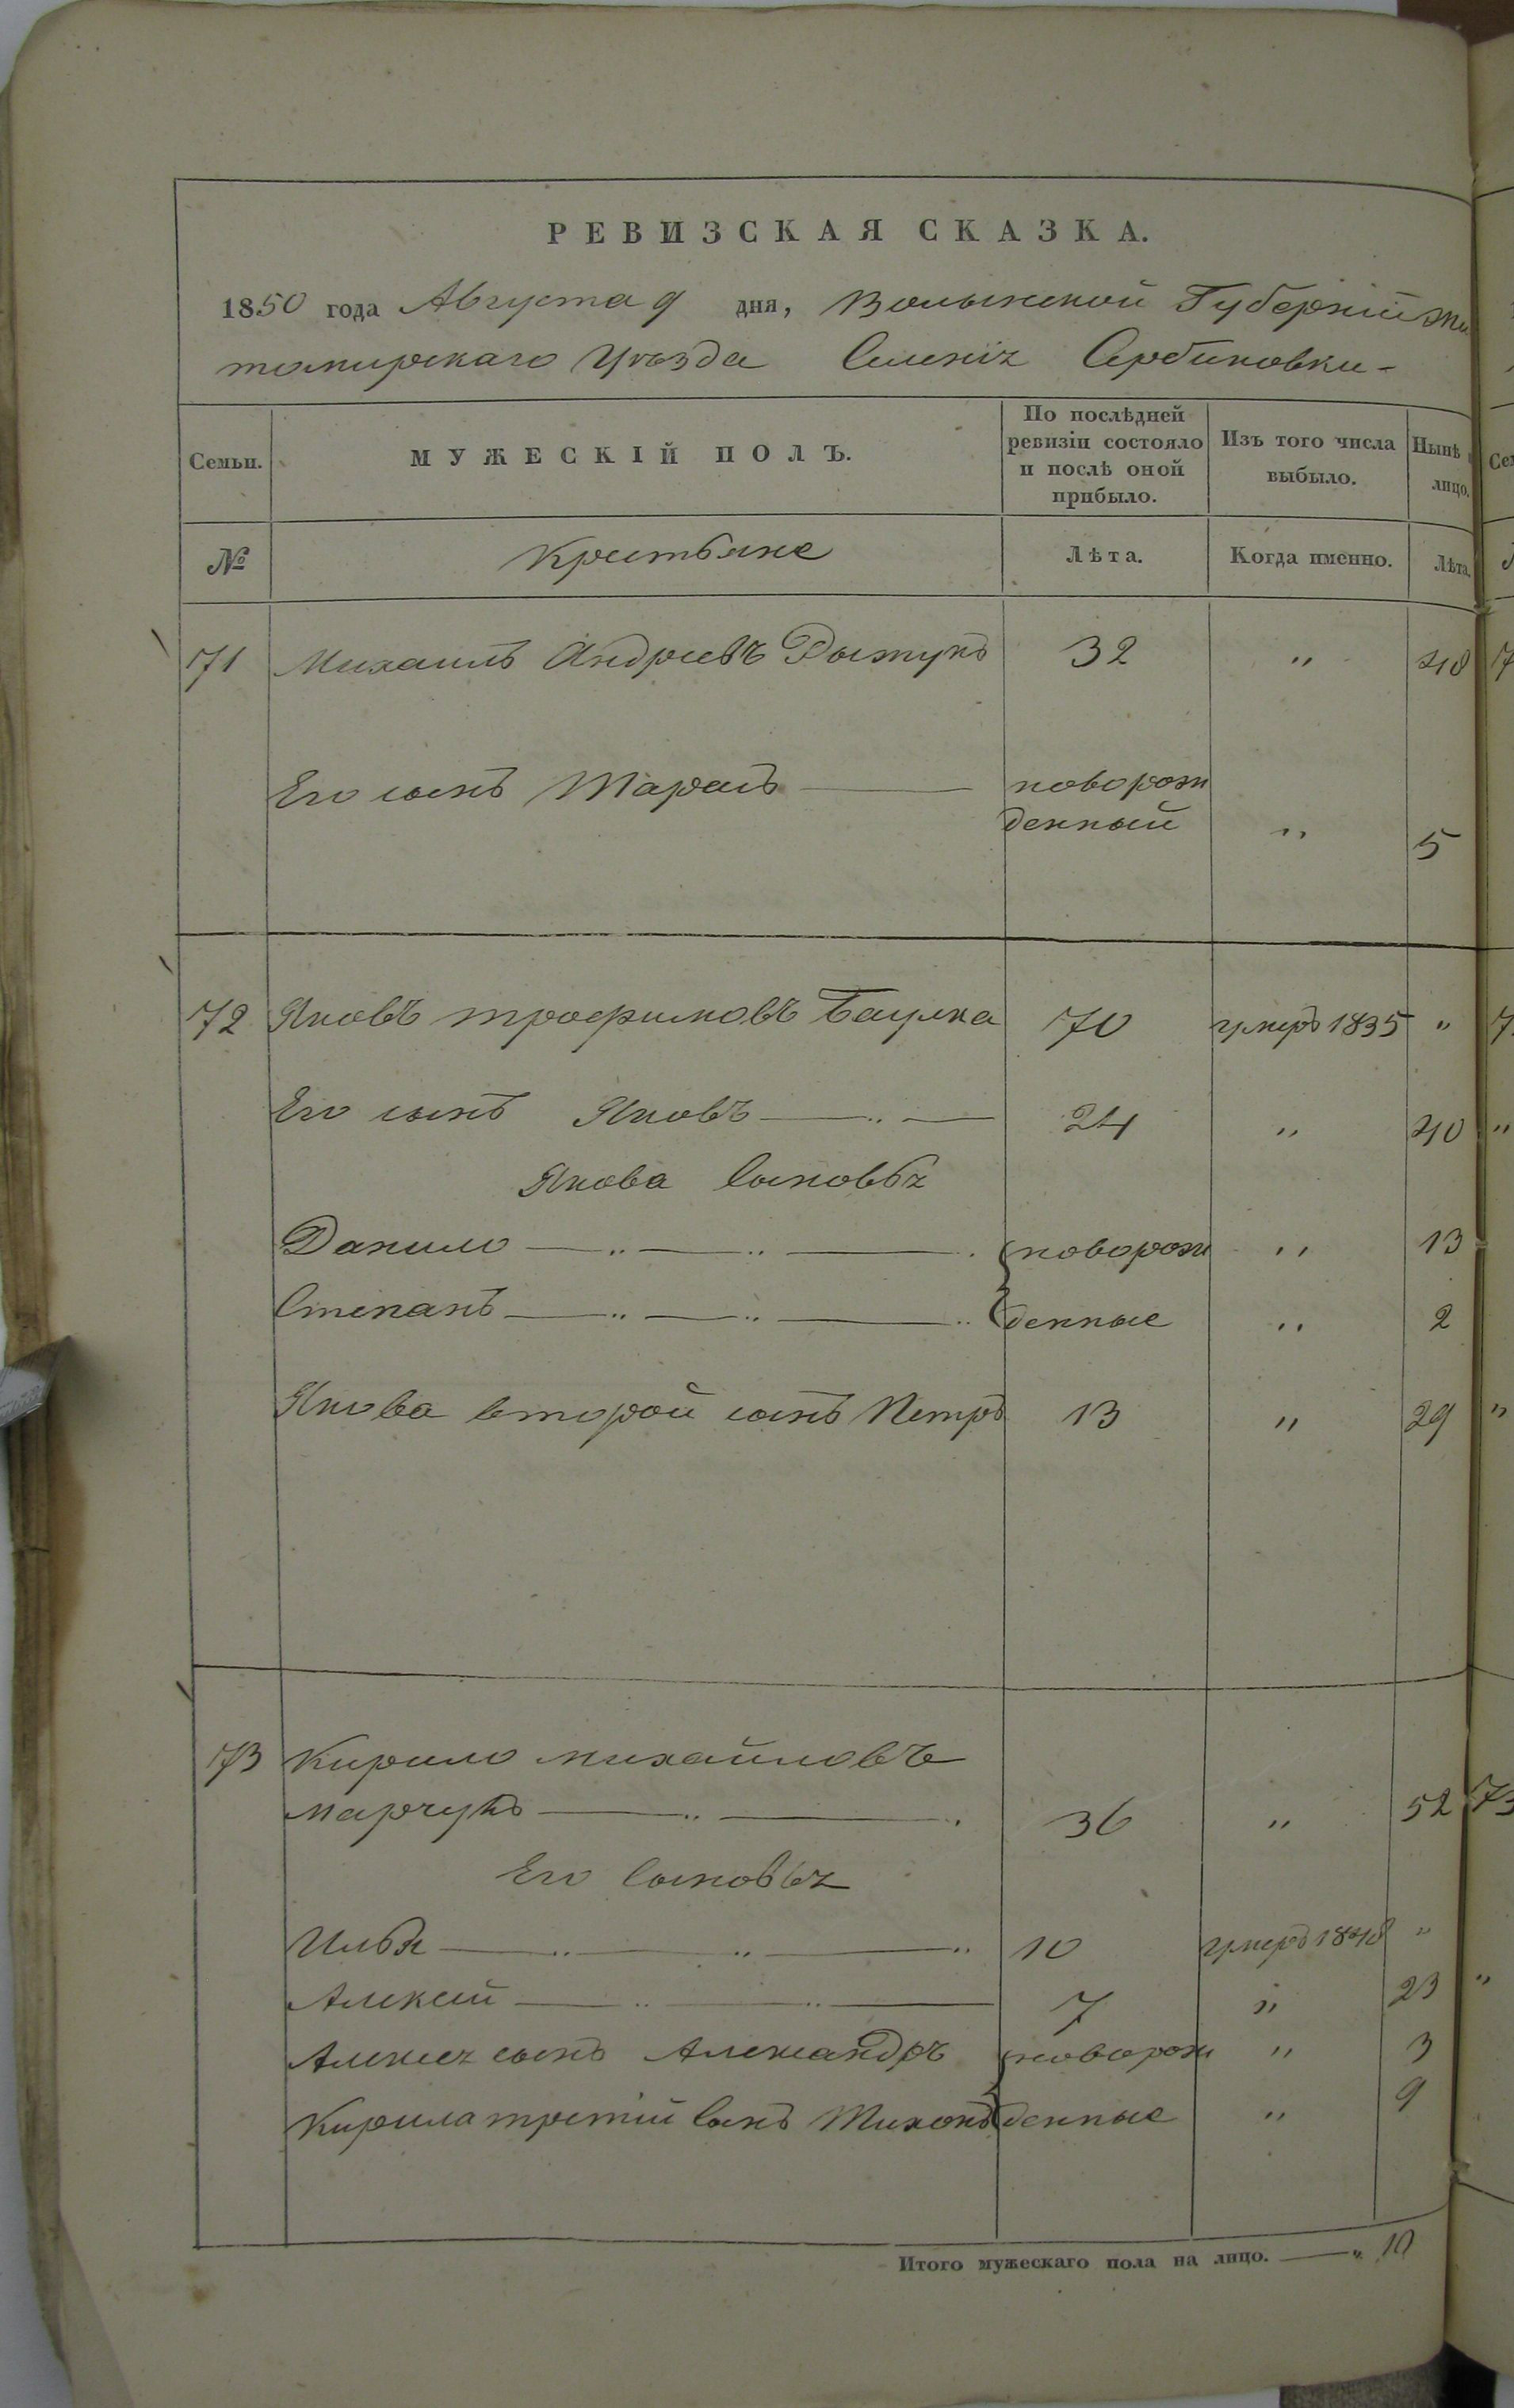 РЕВИЗСКАЯ СКАЗКА.
1850 года Августа 9 дня, Волынской Губерніи Жи
томирскаго Уѣзда Селенія Сербиновки -
Семьи. МУЖЕСКІЙ ПОЛЪ. По послѣдней ревизіи состояло и послѣ оной прибыло. Изъ того числа выбыло. Нынѣ лицо.
№ Крестьяне Лѣта. Когда именно. Лѣта.
71 Михаилъ Андреевъ 32 " 48
Его сынъ Тарасъ новорож
денный " 5
72 Яковъ Трофимовъ 70 умеръ 1835 "
Его сынъ Яковъ 24 " 40
Якова Сыновья
Данило новорож " 13
Степанъ денные " 2
Якова второй сынъ Петръ 13 " 29
73 Кирило Михайловъ
Марчукъ 36 " 52
Его Сыновья
Илья 10 умеръ 1848 "
Алексей 7 " 23
Алексея сынъ Александръ новорож " 3
Кирила третій Сынъ Тихонъ денные " 9
Итого мужескаго пола на лицо. " 10